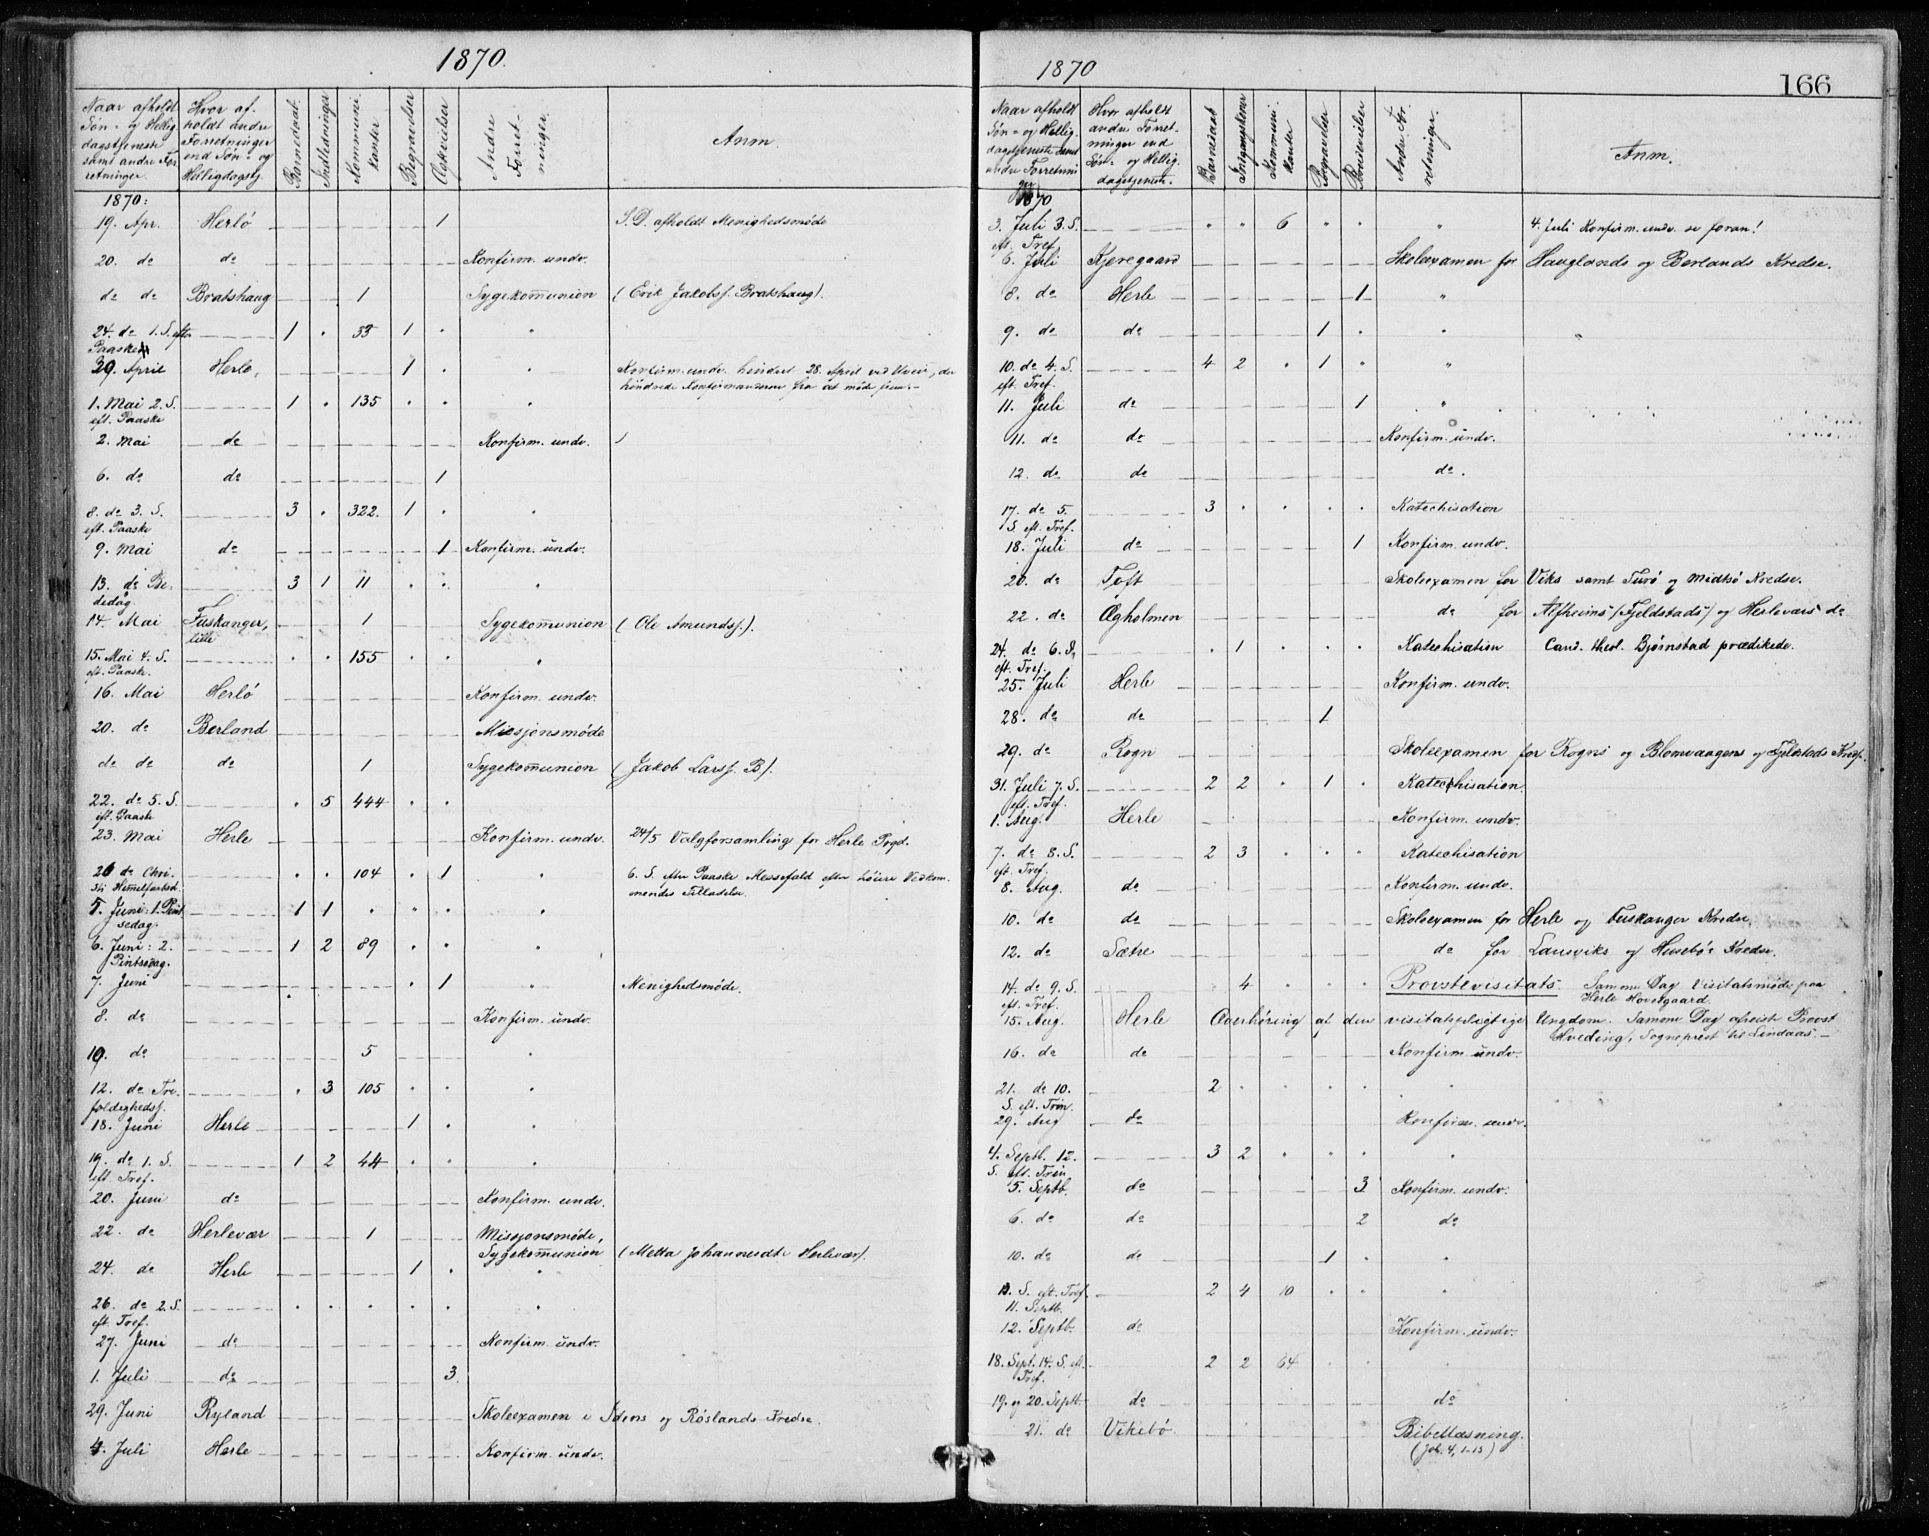 1870.
Naar afholdt Søn- og Helligdagstjeneste samt andre Forretninger. | Hvor afholdt andre Forretninger end Søn- og Helligdagstj. | Barnedaab. | Indledninger | Kommunikanter | Begravelser | Ægtevielser | Andre Forretninger. | Anm.
1870:
19. Apr. Herlö 1 S. D. afholdt Menighedsmöde
20. do do Konfirm. undv.
do do Bratshaug 1 Sygekommunion (Erik Jakobss. Bratshaug).
24. do 1. S. efter Paaske 1 " 33 1 " "
29. April Herlö, 1 " " Konfirm. undv. hindret 28. April ved Uveir, der
hindrede Konfirmanderne fra at möde frem. -
1. Mai 2. S. eft. Paaske 1 " 135 " " "
2. Mai do Konfirm. undv.
6. do do 1
8. do 3. S. eft. Paaske 3 " 322 1 "
9. Mai do 1 Konfirm. undv.
13. do Bededag 3 1 11 " " "
14. Mai Fuskanger, litle 1 Sygekommunion (Ole Amundss.).
15. Mai 4. S. eft. Paaske. " " 155 " " "
16. Mai Herlö Konfirm. undv.
20. do Berland Missjonsmöde
do do do 1 Sygekommunion (Jakob Larss. B).
22. do 5. S. eft. Paaske " 5 444 " "
23. Mai Herlö Konfirm. undv. 24/5 Valgforsamling for Herlö Prgd.
26 do Christi Himmelfartsd. " " 104 " 1 " 6. S. efter Paaske Messefald efter höiere Vedkommendes Tilladelse.
5. Juni: 1. Pintsedag. 1 1 " " " "
6. Juni: 2. Pintsedag. 1 2 89 " " "
7. Juni " 1 " Menighedsmöde.
8. do Konfirm. undv.
10. do 5 "
12. do Trefoldighedss. " 3 105 " " "
18. Juni Herlö 1 " "
19. do 1. S. eft. Tref. 1 2 44 " " "
20. Juni do Konfirm. undv.
22. do Herlevær 1 Missjonsmöde,
Sygekommunion (Metta Johannesdtr Herlevær).
24. do Herlö 1 " "
26. do 2. S. eft. Tref. " " " " " "
27. Juni do Konfirm. undv.
1. Juli do 3.
29. Juni Ryland Skoleexamen i Io Röslands Kredse.
4. Juli Herlö Konfirm. undv.
1870
166
Naar afholdt Søn- og Helligdagstjeneste samt andre Forretninger | Hvor afholdt andre Forretninger end Søn- og Helligdagstjeneste. | Barnedaab | Kommunikanter | Begravelser | Andre Forretninger. | Anm.
1870
3. Juli 3. S. eft. Tref. " " 6 " " " 4. Juli Konfirm. undv. se foran!
6. Juli Kjæregaard Skoleexamen for Hauglands og Berlands Kredse.
8. do Herlö 1 "
9. do do 1 " "
10. do 4. S. eft. Tref. 4 2 " 1 " "
11. Juli do 1 "
11. do do Konfirm. undv.
12. do do do.
17. do 5. S. eft. Tref. 3 " " " " Katechisation
18. Juli do 1 Konfirm. undv.
20. do Toft Skoleexamen for Viks samt Turö og Midtsö Kredse.
22. do Ægholmen do for Alfheims (Fjeldstads) og Herleværs do
24. do 6. S. eft. Tref. " 1 " " " Katechisation Cand. theol. Bjørnstad prædikede.
25. Juli Herlö Konfirm. undv.
28. do do 1
29. do Rogn Skoleexamen for Rogns og Blomvaagens og Fjeldstads Kreds.
31. Juli 7. S. eft. Tref. 2 2 " 1 " Katechisation
1. Aug. Herlö Konfirm. undv.
7. do 8. S. eft. Tref. 2 3 " " " Katechisation
8. Aug. do Konfirm. undv.
10. do do Skoleexamen for Herlö og Fuskanger Kredse
12. do Sætre do for Lausviks og Husebö Kredse.
14. do 9. S. eft. Tref. 4 " " " Provstevisitats. Samme Dag Visitatsmöde paa
Herlö Hovedgaard.
15. Aug. Herlö Overhöring af den visitatspligtige Ungdom. Samme Dag afreist Provst
Hveding, Sogneprest til Lindaas. -
16. do do Konfirm. undv.
21. do 10. S. eft. Trin. 2 " " " " "
29. Aug do Konfirm. undv.
4. Septb. 12. S. eft. Trin 3 2 " " " "
5. Septb. do 3 Konfirm. undv.
6. do do 2 do
10. do do 1 " "
13. S. eft. Tref. 11. Septb. 2 4 10 " " "
12. Septb. do Konfirm. undv.
18. Sept. 14. S. eft. Tref. 2 2 64 " "
19. og 20. Septb do do
21. do Vikebö Bibellæsning.
(Joh. 4, 1-15)